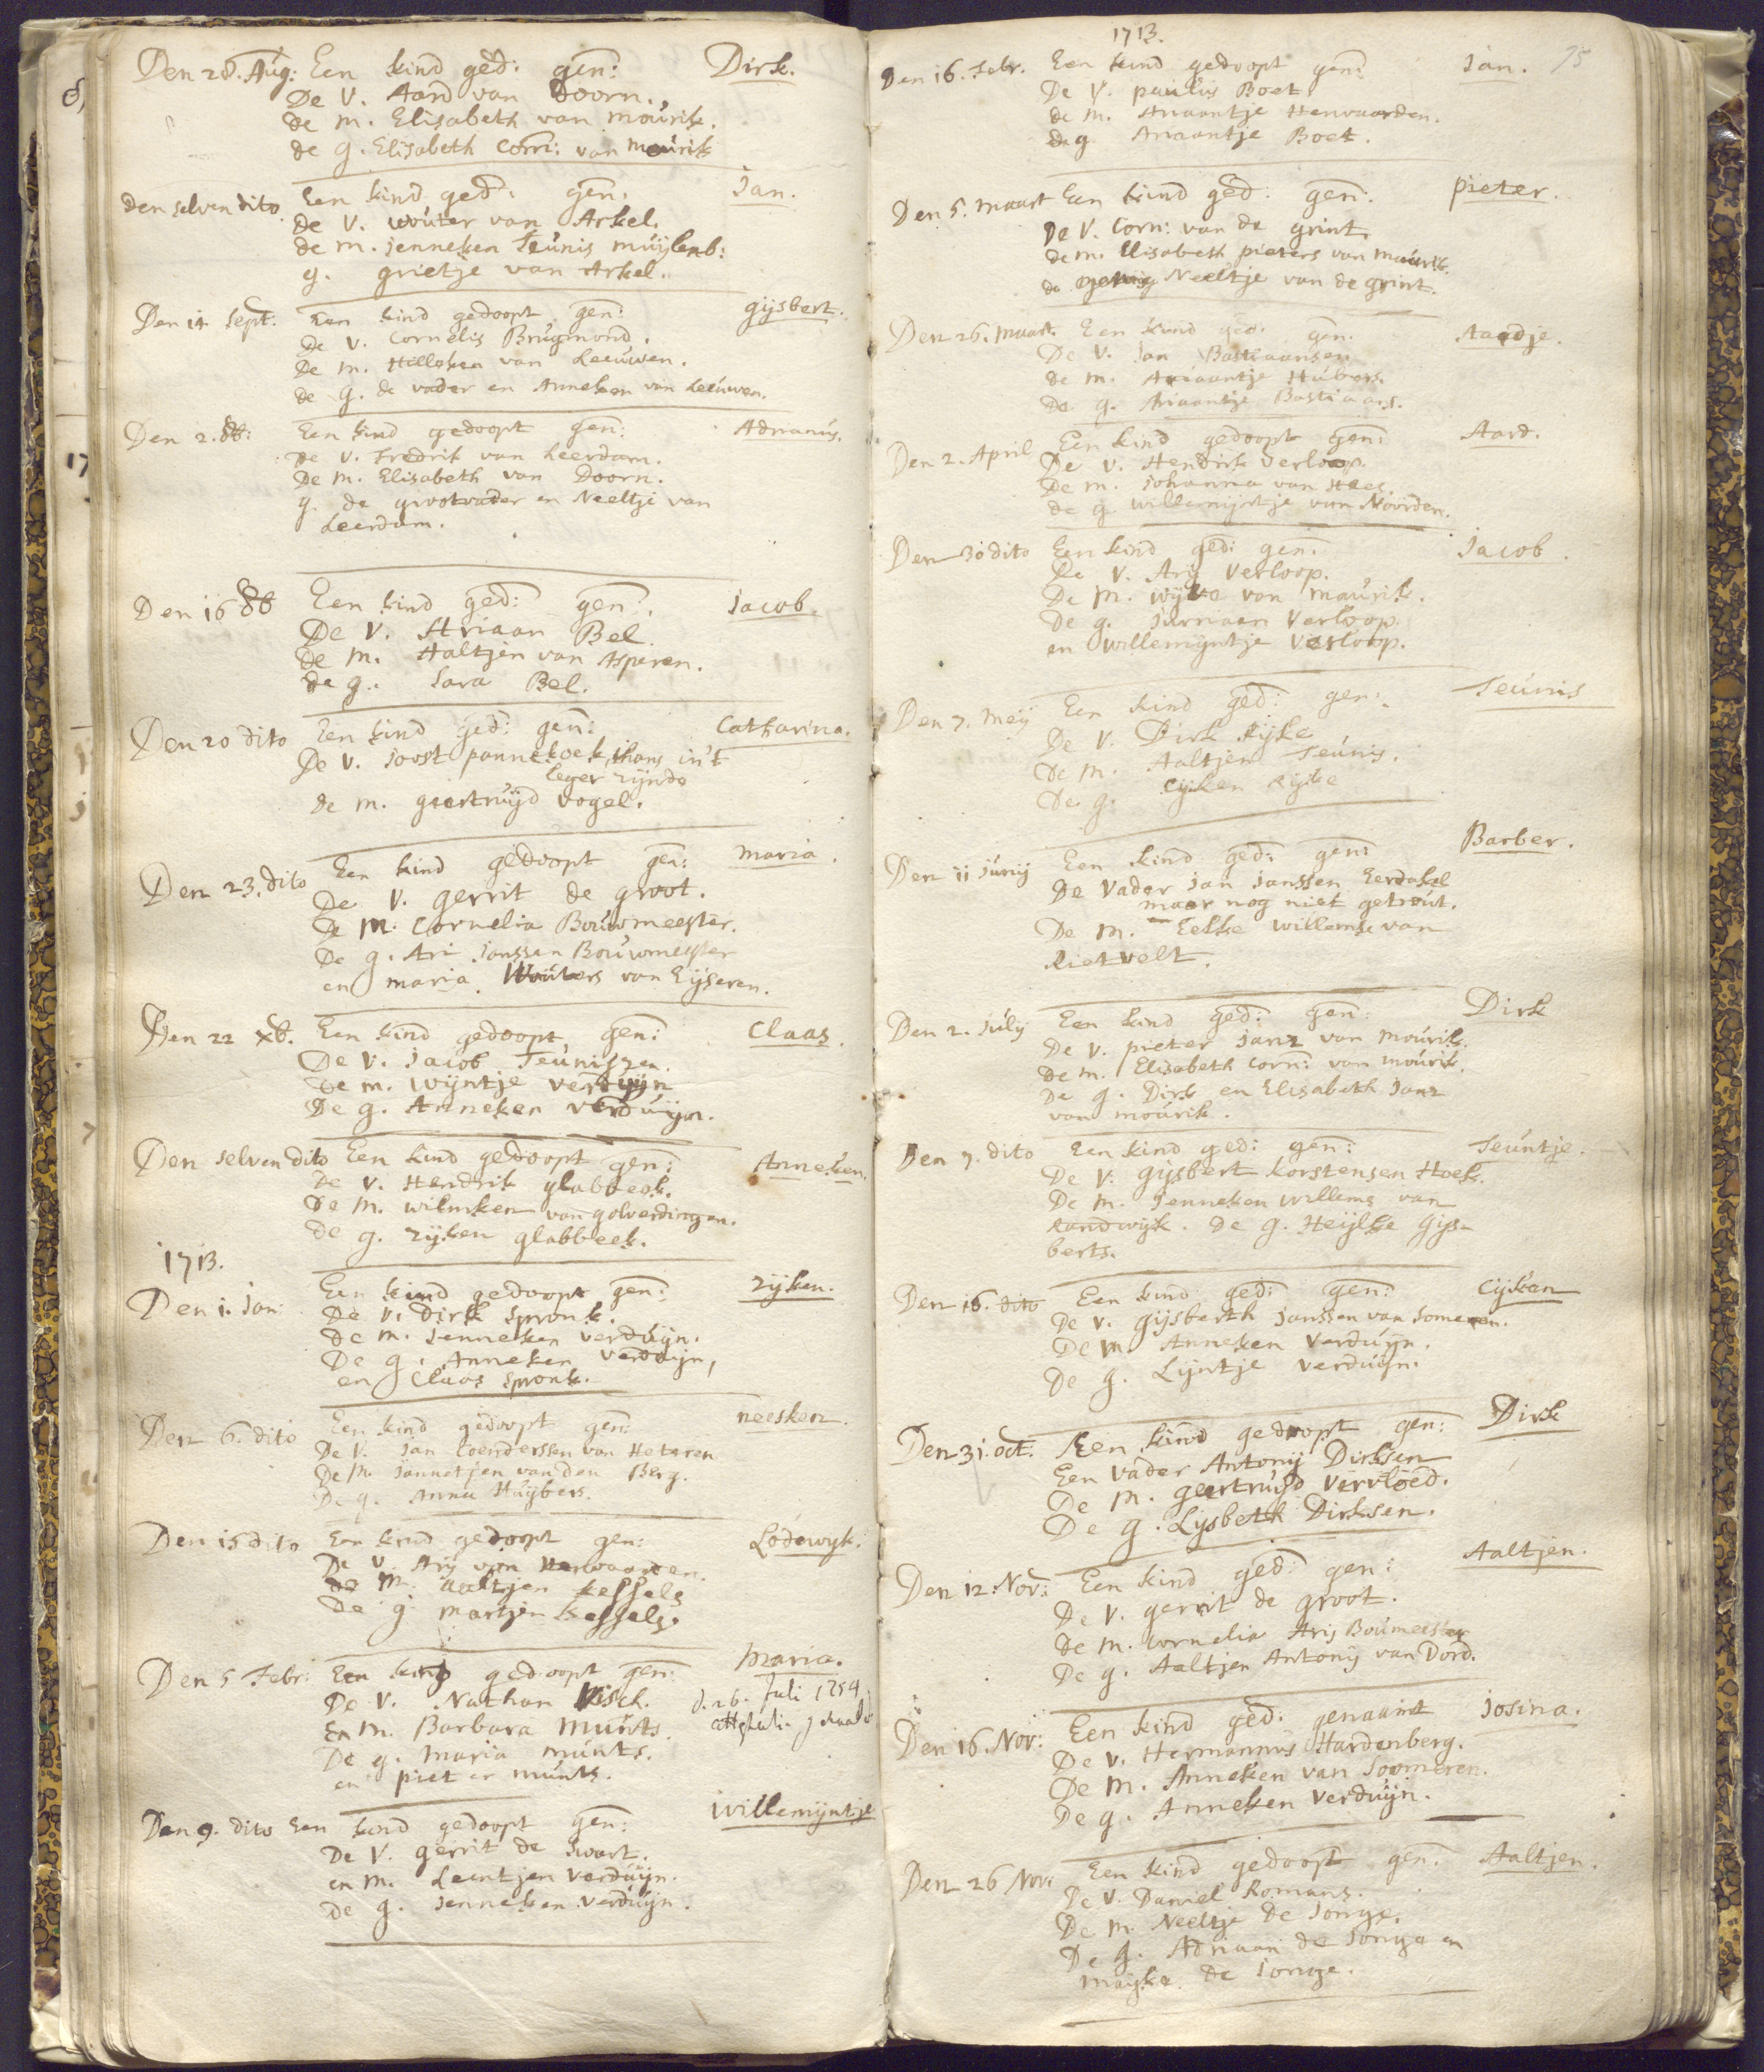 Den 28. Aug: Een kind ged: gen: Dirk.
De V. Aard van Doorn.
de m. Elisabeth van mourik.
de g. Elisabeth Corn: van mourik
den selven dito Een kind ged: gen: Jan.
de V. wouter van Arkel.
de m. jenneken Teunis muijlenb:
g. grietje van Arkel.
Den 14 Sept: Een kind gedoopt gen: gijsbert.
De V. Cornelis Brugmond.
De m. Hilleken van Leeuwen.
de g. de vader en Anneken van Leeuwen.
Den 2. 8b: Een kind gedoopt gen: Adrianus.
de V. Fredrik van Leerdam.
De m. Elisabeth van Doorn.
g. de grootvader en Neeltje van
Leerdam.
Den 16 8b Een kind ged: gen: Jacob.
De V. Ariaan Bel.
de m. Haltjen van Asperen.
de g. Sara Bel.
Den 20 dito Een kind ged: gen: Catharina.
De V. Joost pannekoek, thans in't
leger zijnde
de m. geertruijd Vogel.
Den 23. dito Een kind gedoopt gen: maria.
De V. gerrit de groot.
De m: Cornelia Bouwmeester.
De g. Ari Janssen Bouwmeester
en maria Wouters van Eijseren.
Den 22 xb. Een kind gedoopt gen: Claas.
De V. Jacob Teuniszen.
de m. wijntje verduijn
De g. Anneken verduijn.
Den selven dito Een kind gedoopt gen: Anneken.
De V. Hendrik glabbeek.
De m. wilmken van golverdingen.
de g. zijken glabbeek.
1713.
Den 1. Jan: Een kind gedoopt gen: zijken.
De V. Dirk Spronk.
de m. Jenneken verduijn.
De g. Anneken verduijn,
en Claas Spronk.
Den 6. dito Een kind gedoopt gen: neesken.
De V. Jan Coenderssen van Heteren
De m. Jannetjen van den Berg.
De g. Anna Huijbers.
Den 15 dito Een kind gedoopt gen: Lodewyk.
De V. Arij van Herwaarden.
de m. Aaltjen kessels
De g. martjen kessels.
Den 5 Febr: Een kind gedoopt gen: maria.
De V. Nathan Visch. d. 26. Juli 1754
En m. Barbara munts.
De g. maria munts.
en pieter munts.
Den 9. dito Een kind gedoopt gen: Willemijntje
De V. gerrit de Swart.
en m. Leentjen verduijn.
de g. Jenneken verduijn.
1713.
75
Den 16. Febr. Een kind gedoopt gen: Jan.
De V. paulus Boet
de m. Ariaantje Herwaarden.
de g Ariaantje Boet.
Den 5. maart Een kind ged: gen: pieter.
De V. Corn: van de grint
de m. Elisabeth pieters van maurik.
de Neeltje van de grint.
Den 26. maart. Een kind ged: gen. Aardje.
De V. Jan Bastiaansen
de m. Ariaantje Hubers.
De g. Ariaantje Bastiaans.
Den 2. April Een kind gedoopt gen: Aard.
De V. Hendrik verloop.
De m. Johanna van Hees.
de g. willemijntje van Noorden.
Den 30 dito Een kind ged: gen: Jacob.
De V. Arij Verloop.
De m. wijve van maurik.
De g. Jurriaan Verloop
en willemijntje Verloop.
Den 7. meij Een kind ged: gen: Teunis
De V. Dirk Rijke
De m. Aaltjen Teunis.
De g. cijken Rijke
Den 11 Junij Een kind ged: gen: Barber.
De Vader Jan Janssen Eerdakel
maar nog niet getrout.
De m. Eelke willemse van
Rietvelt.
Den 2. Julij Een kind ged: gen: Dirk
De V. pieter Janz van mourik.
de m. Elisabeth Corn: van mourik.
De g. Dirk en Elisabeth Janz
van mourik.
Den 9. dito Een kind ged: gen: Teuntje.
De V. gijsbert korstensen Hoek.
De m. Jenneken willems van
Randwijk. De g. Heijlke Gijs-
berts.
Den 16. dito Een kind ged: gen: Cijken
De V. gijsberth Janssen van Someren.
De m Anneken verduijn.
De g. Lijntje verduijn.
Den 31. oct: Een kind gedoopt gen: Dirk
Een Vader Antonij Dirksen
De m. geertruijd vervloed.
De g. Lysbeth Dirksen.
Den 12. Nov: Een kind ged: gen: Aaltjen.
De V. gerrit de groot.
De m. Cornelia Arij Boumeester
De g. Aaltjen Antonij van Dord.
Den 16. Nov: Een kind ged. genaamt Josina.
De V. Hermannus Hardenberg.
De m. Anneken van Soomeren.
De g. Anneken verduijn.
Den 26 Nov: Een kind gedoopt gen: Aaltjen.
De V. Daniel Romans.
De m. Neeltje de Jonge.
De g. Adriaan de Jonge en
maijke de Jonge.